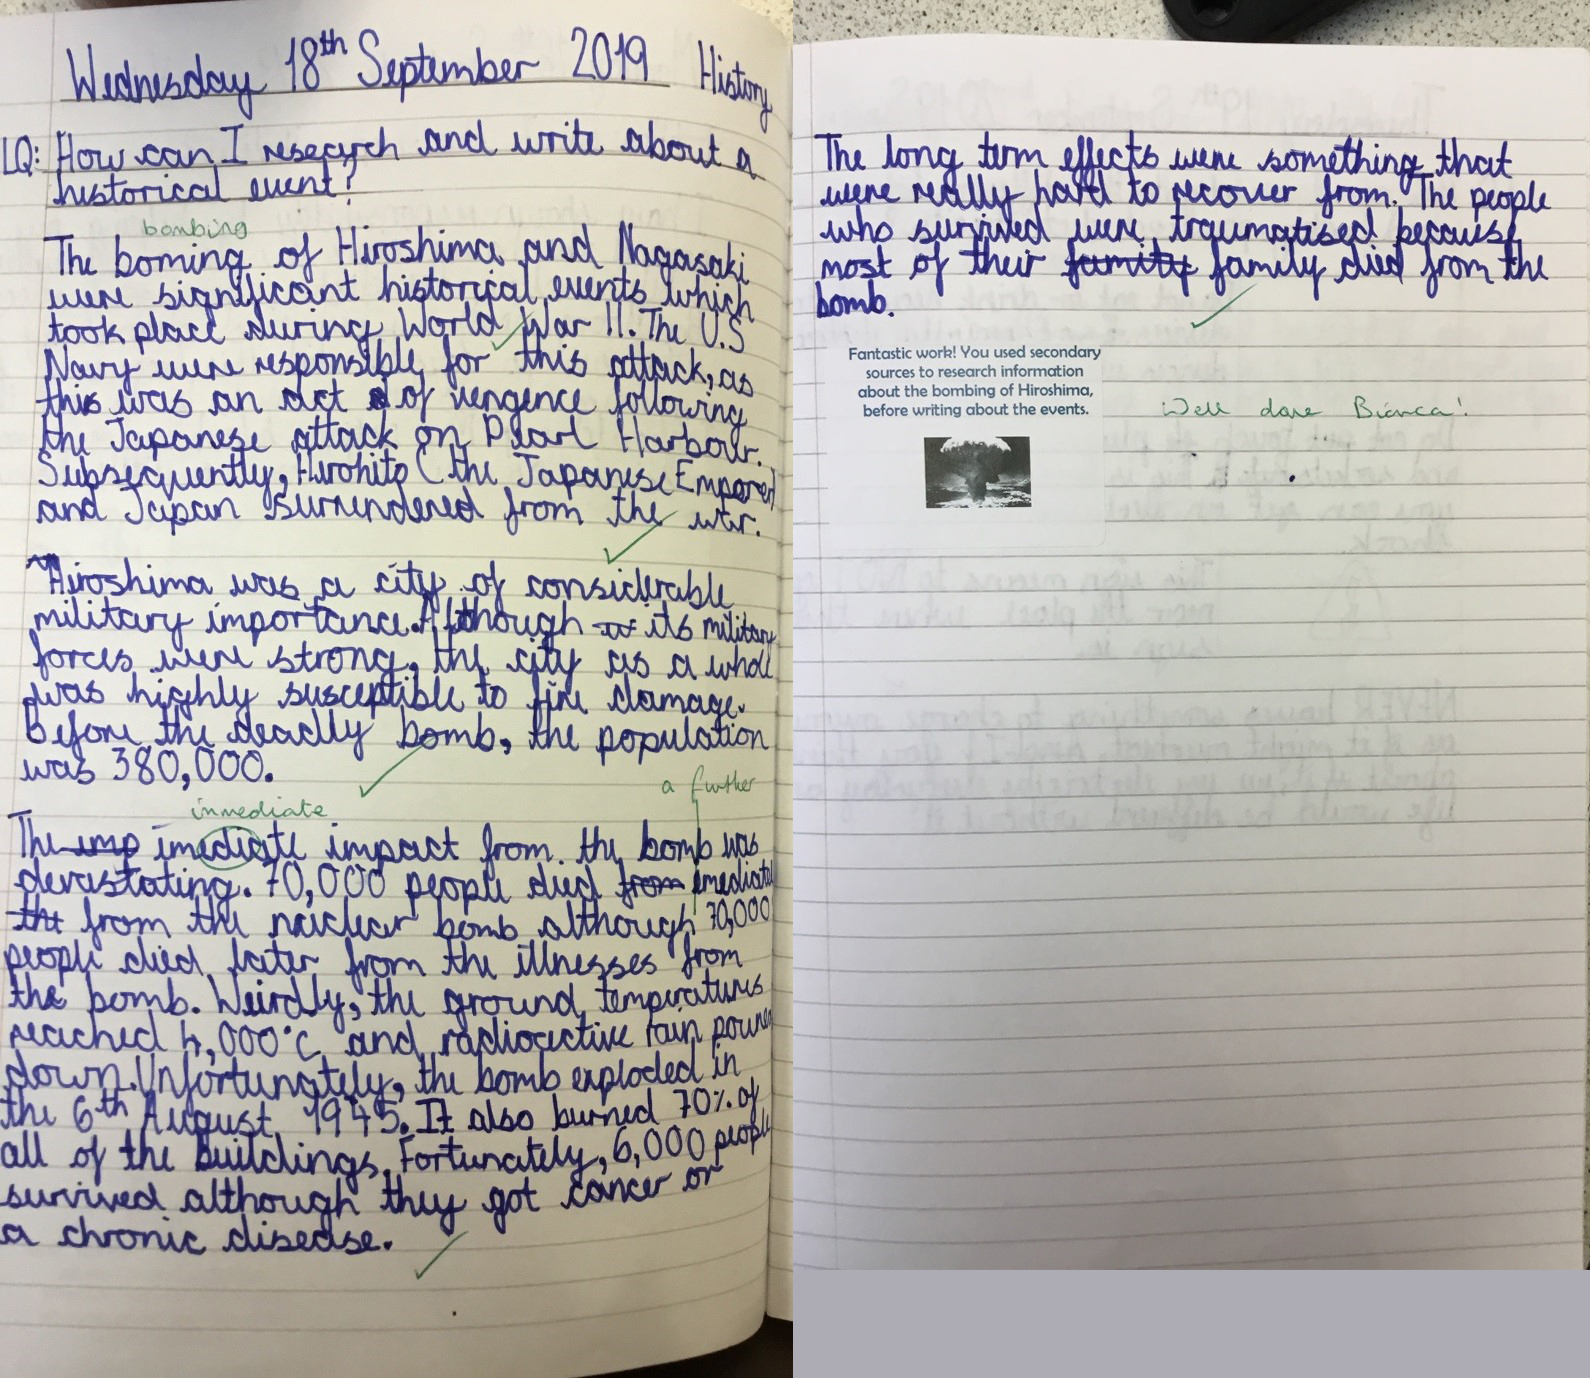 Wednesday 18th September 2019 History
LQ: How can I research and write about a
historical event?
bombing
The boming of Hiroshima and Nagasaki
were significant historical events which
took place during World War II. The U.S
Navy were responsible for this attack, as
this was an act of vengence following
the Japanese attack on Pearl Harbour.
Subsequently, Hirohito (the Japanese Emporer)
and Japan surrendered from the war.
Hiroshima was a city of considerable
military importance. Although its military
forces were strong, the city as a whole
was highly susceptible to fire damage.
Before the deadly bomb, the population
was 380,000.
a further
immediate
The imp imediate impact from the bomb was
devastating. 70,000 people died from emediatel
the from the nuclear bomb although 70,000
people died later from the illnesses from
the bomb. Weirdly, the ground temperatures
reached 4,000°C and radioactive rain poured
down. Unfortunately, the bomb exploded in
the 6th August 1945. It also burned 70% of
all of the buildings. Fortunately, 6,000 people
survived although they got cancer or
a chronic disease.
The long term effects were something that
were really hard to recover from. The people
who survived were traumatised because
most of their family family died from the
bomb.
Fantastic work! You used secondary
sources to research information
about the bombing of Hiroshima,
before writing about the events.
Well done Bianca!